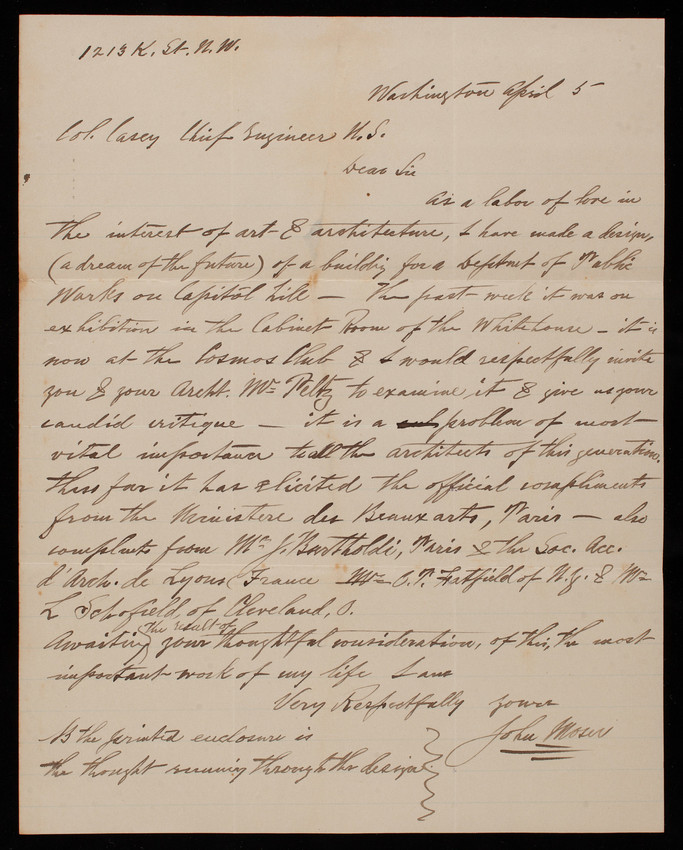 1213 K. St. N. W.
Washington April 5
Col. Casey Chief Engineer U.S.
Dear Sir
As a labor of love in
the interest of art & architecture, I have made a design,
(a dream of the future) of a building for a Deptmt of Public
Works on Capitol Hill — The past week it was on
exhibition in the Cabinet Room of the Whitehouse — it is
now at the Cosmos Club & I would respectfully invite
you & your Archt. Mr Peltz to examine it & give us your
candid critique — it is a problem of most
vital importance to all the architects of this generation.
thus far it has elicited the official compliments
from the Ministere des Beaux arts, Paris — also
complmts from Mr J. Bartholdi, Paris & the Soc. Acc.
d'Arch. de Lyons France Mr O. P. Hatfield of N.Y. & Mr
L Schofield, of Cleveland, O.
Awaiting the result of your thoughtful consideration, of this, the most
important work of my life I am
Very Respectfully yours
John Moser
B the printed enclosure is
the thought running through the design